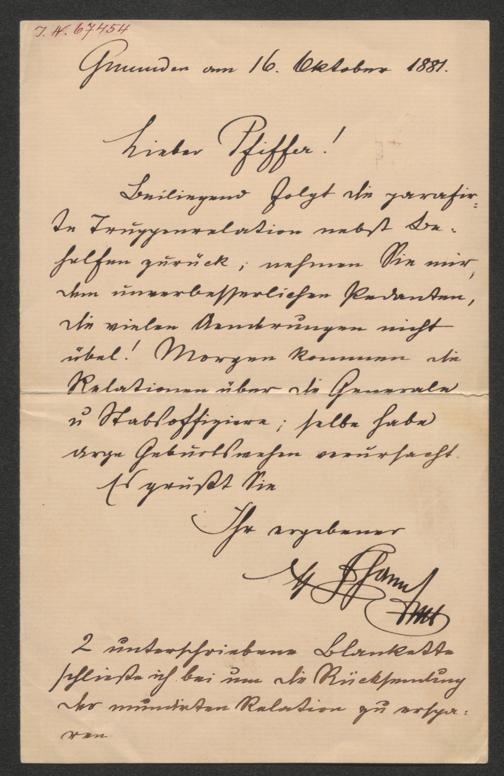 I. N. 67454
Gmunden am 16. Oktober 1881.
Lieber Pfiffer!
Beiliegend folgt die parafir=
te Truppenrelation nebst Be-
helfen zurück; nehmen Sie mir,
dem unverbesserlichen Pedanten,
die vielen Aenderungen nicht
übel! Morgen kommen die
Relationen über die Generale
u Stabsoffiziere; selbe habe
arge Geburtswehen verursacht.
Es grüßt Sie
Ihr ergebener
2 unterschriebene Blankette
schließe ich bei um die Rücksendung
der mundirten Relation zu erspa-
ren